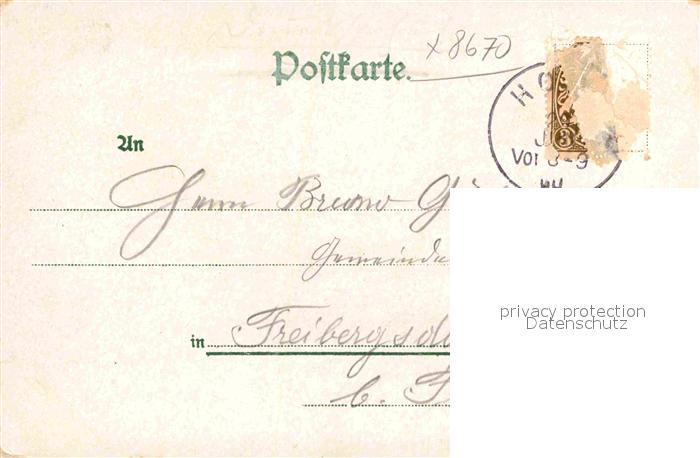 Postkarte.
x 8670
3
Vor 8-9
An
Herrn Bruno
Gemeinde
in Freibergsdo
b. F
privacy protection
Datenschutz